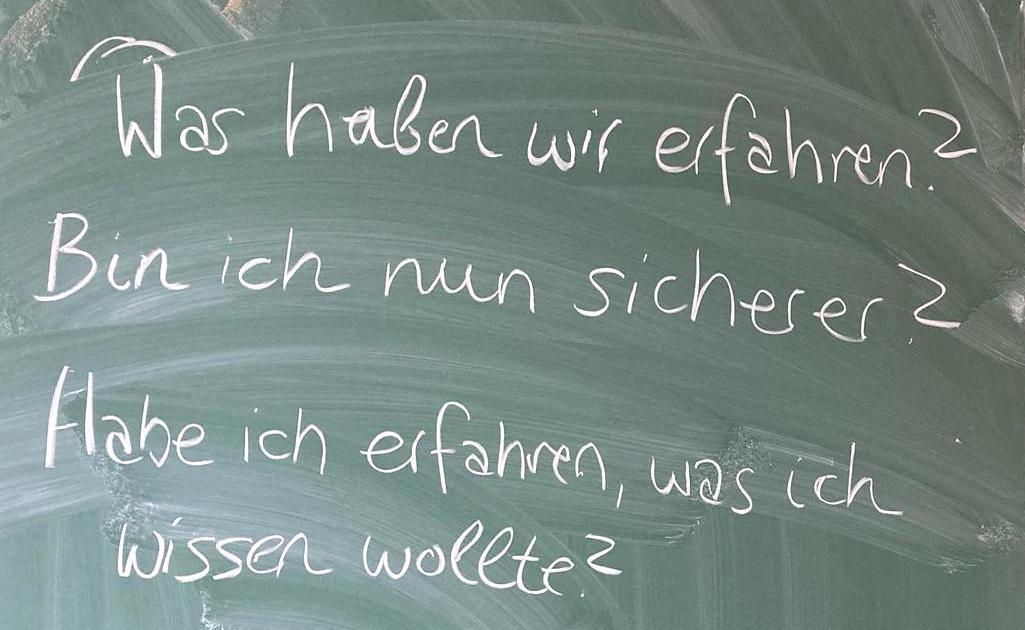 Was haben wir erfahren?
Bin ich nun sicherer?
Habe ich erfahren, was ich
wissen wollte?